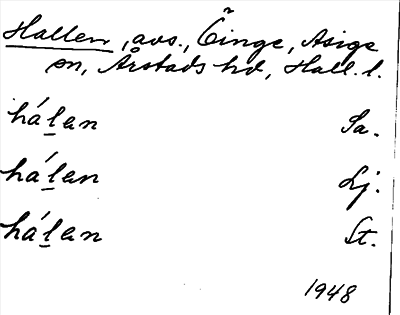 Hallen, avs., Öinge, Asige
sn, Årstads hd, Hall. l.
há´l̲en Sa.
há´l̲en Lj.
há´l̲en St.
1948